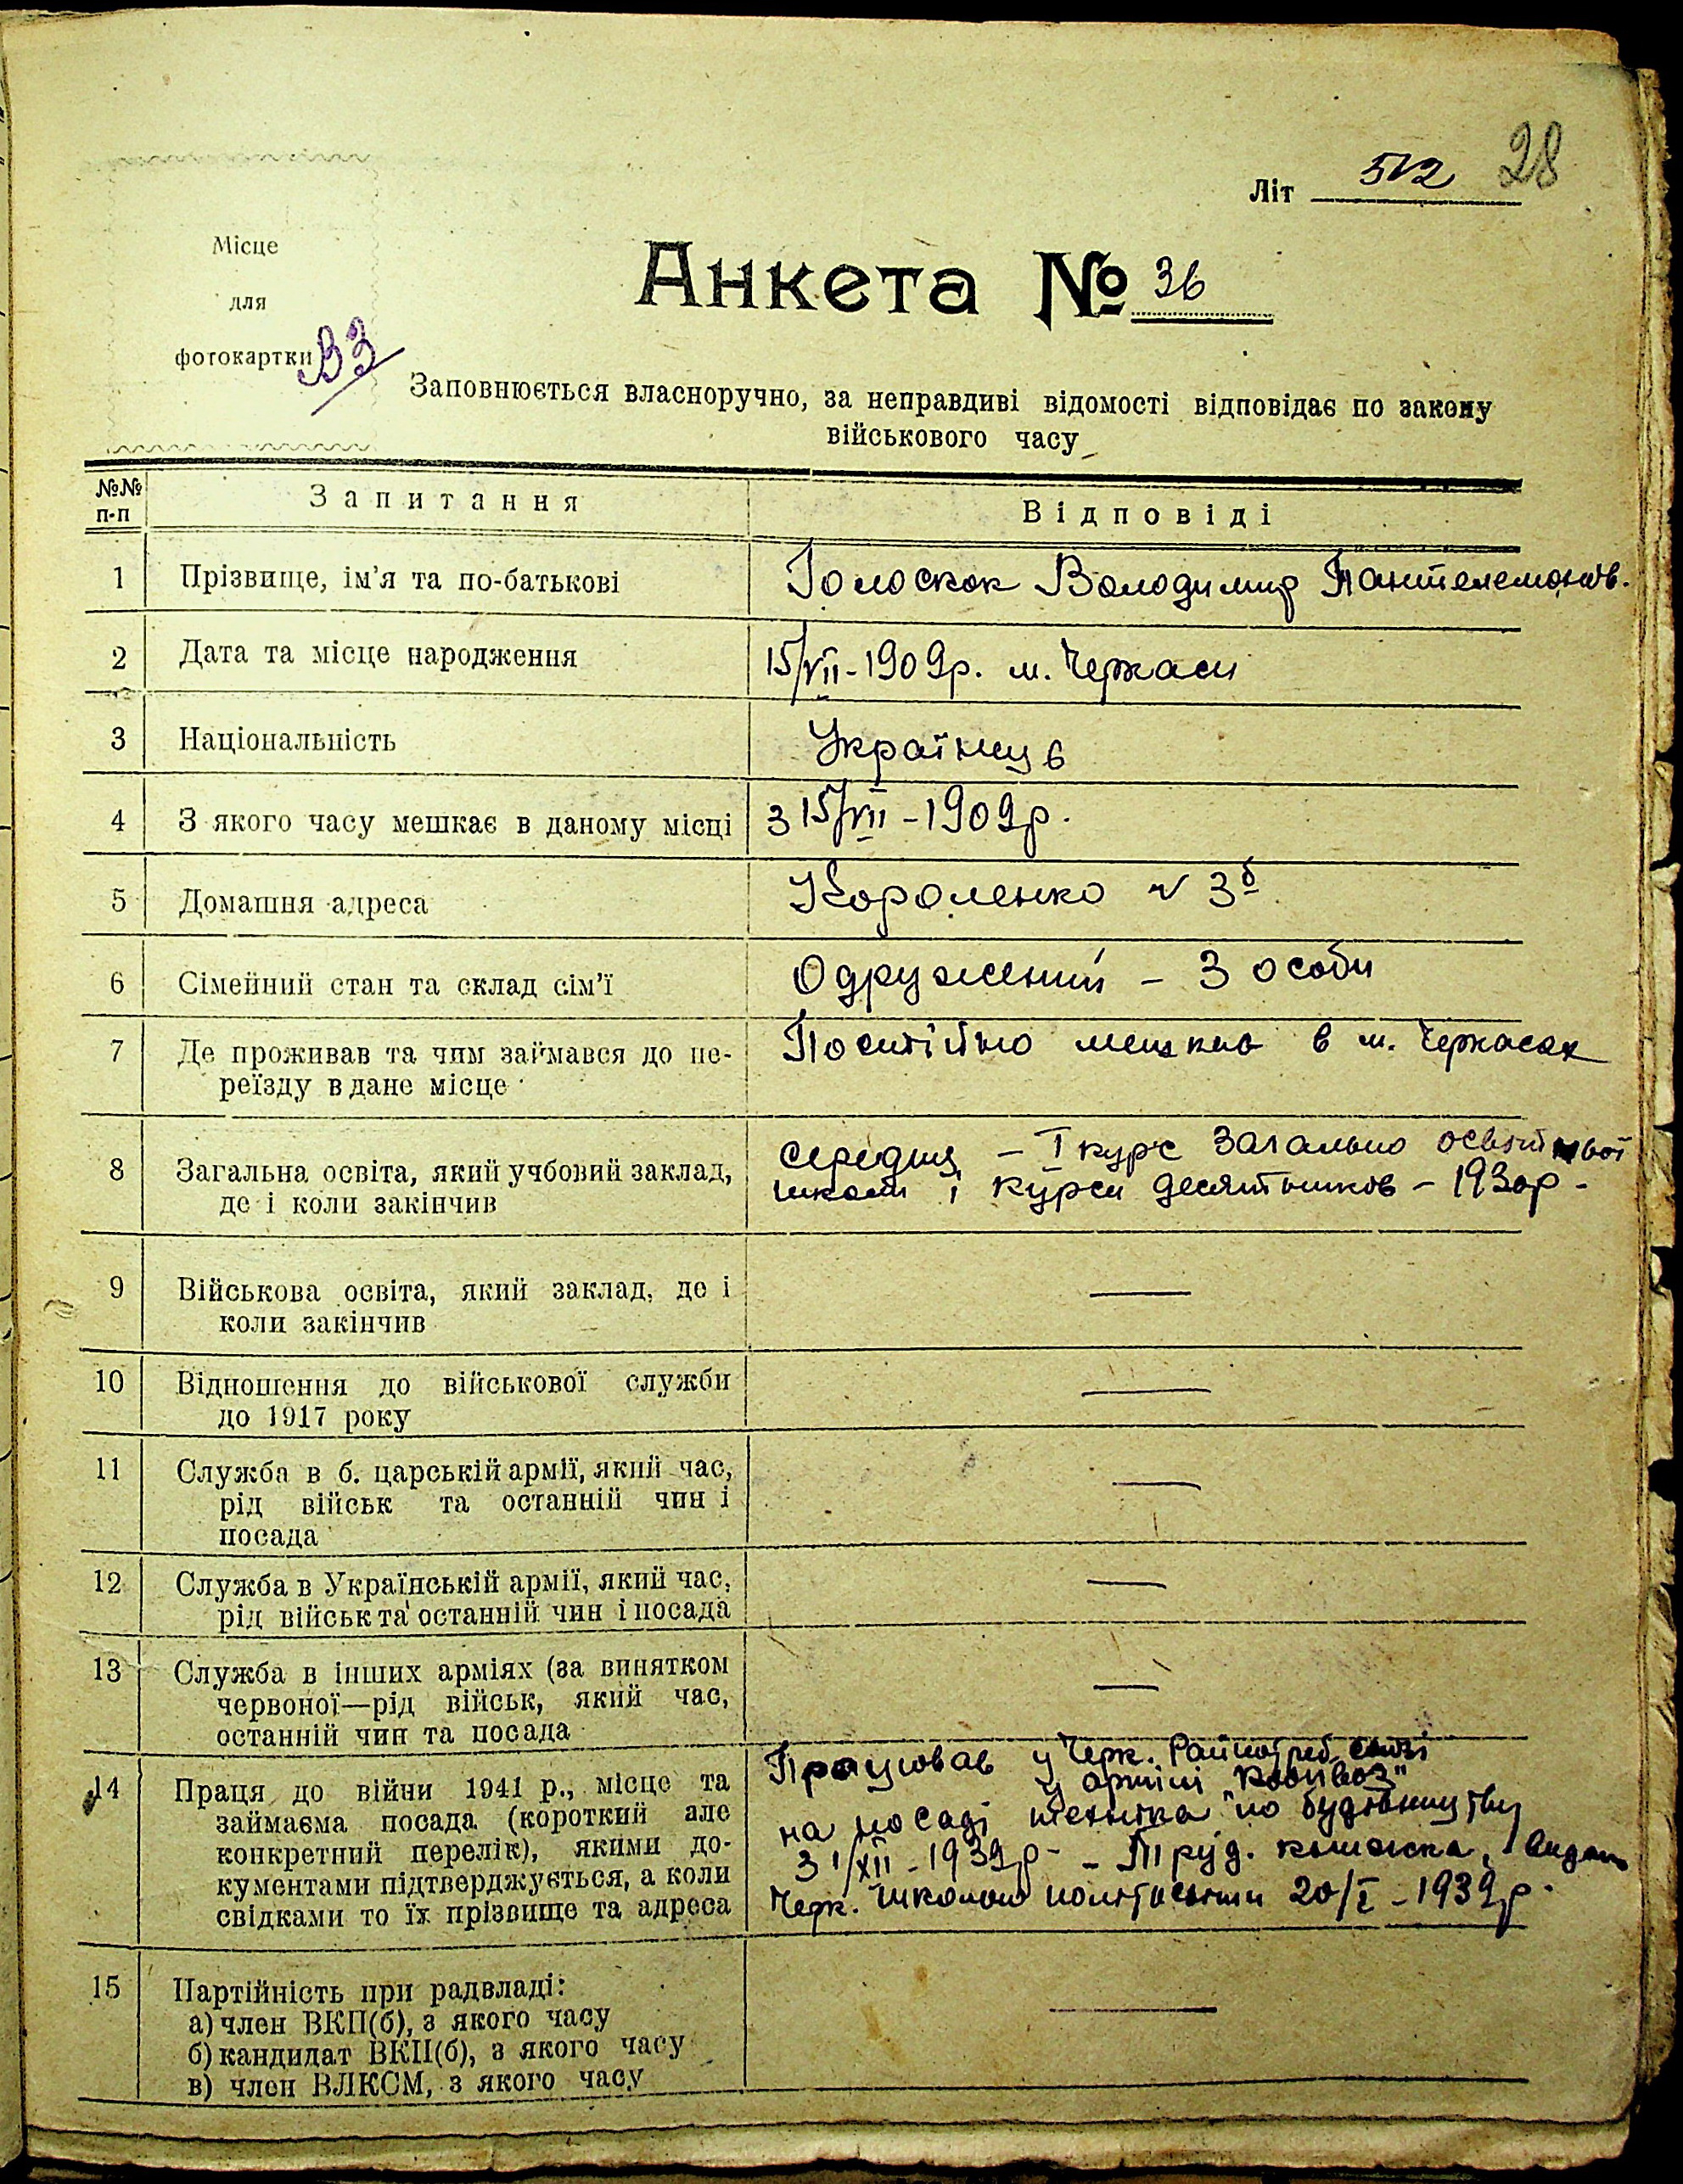 28
Літ 512
Місце
для
фотокартки ВЗ
Анкета № 36
Заповнюється власноручно, за неправдиві відомості відповідає по закону
військового часу
№№ п-п Запитання Відповіді
1 Прізвище, ім'я та по-батькові Голоскок Володимир Пантелемонів.
2 Дата та місце народження 15/VII-1909р. м. Черкаси
3 Національність Українец
4 З якого часу мешкає в даному місці з 15/VII-1909р.
5 Домашня адреса Короленко № 3б
6 Сімейний стан та склад сім'ї Одружений - 3 особи
7 Де проживав та чим займався до пе- Постійно мешкав в м. Черкасах
реїзду в дане місце
8 Загальна освіта, який учбовий заклад, середня - I курс загально освітньої
де і коли закінчив школи і курси десятників - 1930р-
9 Військова освіта, який заклад, де і —
коли закінчив
10 Відношення до військової служби —
до 1917 року
11 Служба в б. царській армії, який час, —
рід військ та останній чин і
посада
12 Служба в Українській армії, який час, —
рід військ та останній чин і посада
13 Служба в інших арміях (за винятком —
червоної—рід військ, який час,
останній чин та посада
14 Праця до війни 1941 р., місце та Працював у Черк. Райпотреб
займаєма посада (короткий але у артілі
конкретний перелік), якими до- на посаді техніка по будівництву
кументами підтверджується, а коли з 1/XII-1939р- - Труд. книжка,
свідками то їх прізвище та адреса Черк. школою політосвіти 20/I-1939р.
15 Партійність при радвладі: —
а) член ВКП(б), з якого часу
б) кандидат ВКП(б), з якого часу
в) член ВЛКСМ, з якого часу